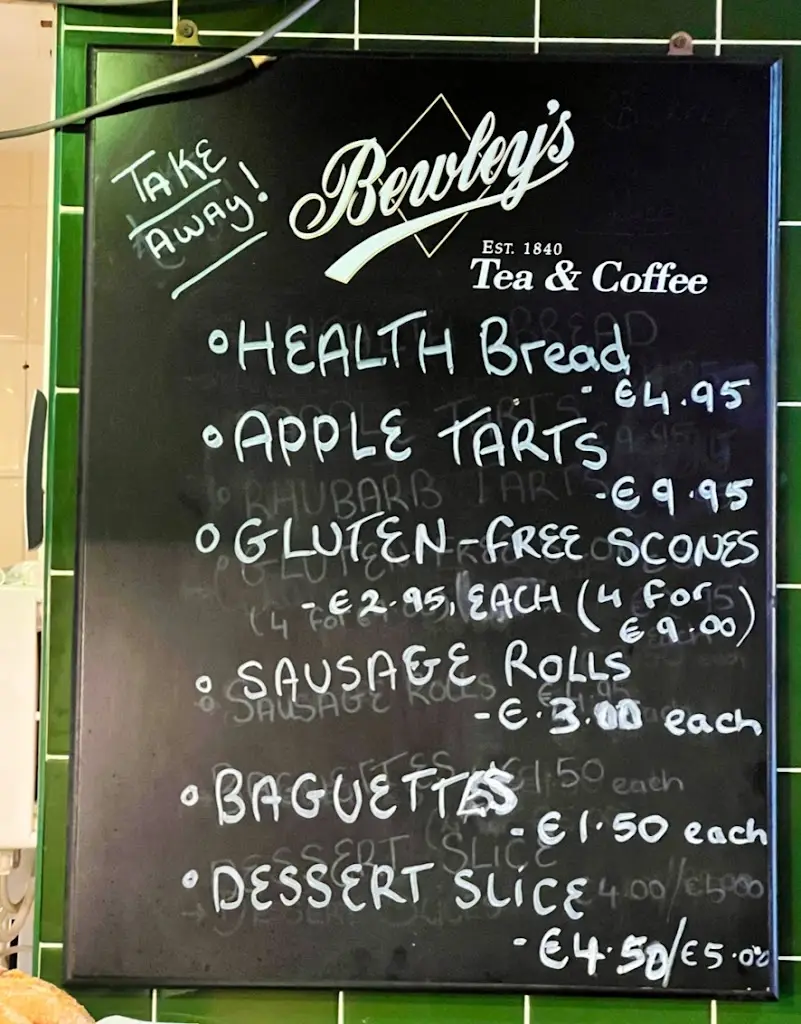 TAKE
AWAY!
Bewley's
EST. 1840
Tea & Coffee
HEALTH Bread
- €4.95
APPLE TARTS
- € 9.95
GLUTEN-FREE SCONES
- € 2.95, EACH (4 for
€ 9.00)
SAUSAGE ROLLS
- €.3.00 each
BAGUETTES
- €1.50 each
DESSERT SLICE
- €4.50/€5.00